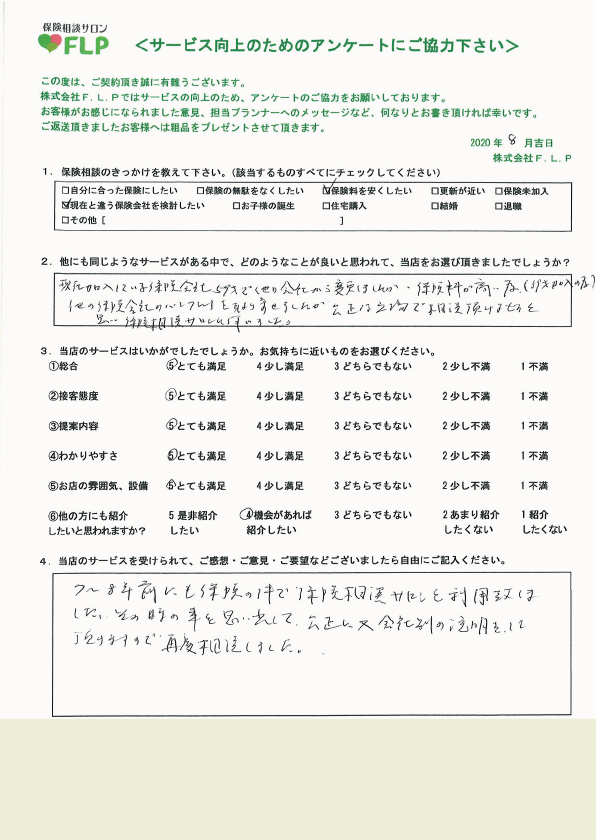 保険相談サロン
FLP
＜サービス向上のためのアンケートにご協力下さい＞
この度は、ご契約頂き誠に有難うございます。
株式会社Ｆ.Ｌ.Ｐではサービスの向上のため、アンケートのご協力をお願いしております。
お客様がお感じになられました意見、担当プランナーへのメッセージなど、何なりとお書き頂ければ幸いです。
ご返送頂きましたお客様へは粗品をプレゼントさせて頂きます。
2020年 8 月吉日
株式会社Ｆ.Ｌ.Ｐ
１．保険相談のきっかけを教えて下さい。(該当するものすべてにチェックしてください)
□自分に合った保険にしたい □保険の無駄をなくしたい ☑保険料を安くしたい □更新が近い □保険未加入
☑現在と違う保険会社を検討したい □お子様の誕生 □住宅購入 □結婚 □退職
□その他 [ ]
２．他にも同じようなサービスがある中で、どのようなことが良いと思われて、当店をお選び頂きましたでしょうか？
現在加入している保険会社 で他の会社から変更しましたが、保険料が高い為
他の保険会社のパンフレットを取り寄せましたが 公正な立場で相談頂けると
思い 保険相談サロンに伺いました。
３．当店のサービスはいかがでしたでしょうか。お気持ちに近いものをお選びください。
①総合 5 とても満足 4 少し満足 3 どちらでもない 2 少し不満 1 不満
②接客態度 5 とても満足 4 少し満足 3 どちらでもない 2 少し不満 1 不満
③提案内容 5 とても満足 4 少し満足 3 どちらでもない 2 少し不満 1 不満
④わかりやすさ 5 とても満足 4 少し満足 3 どちらでもない 2 少し不満 1 不満
⑤お店の雰囲気、設備 5 とても満足 4 少し満足 3 どちらでもない 2 少し不満 1 不満
⑥他の方にも紹介 5 是非紹介 4 機会があれば 3 どちらでもない 2 あまり紹介 1 紹介
したいと思われますか？ したい 紹介したい したくない したくない
４．当店のサービスを受けられて、ご感想・ご意見・ご要望などございましたら自由にご記入ください。
7～8年前にも保険の件で保険相談サロンを利用致しま
した。その時の事を思い出して、公正に又会社別の説明をして
頂けますので再度相談しました。